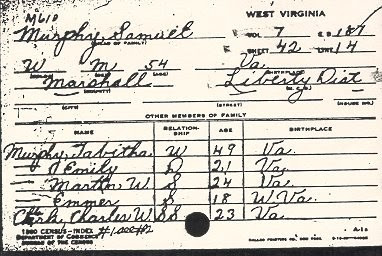 M610
WEST VIRGINIA
Murphy, Samuel VOL. 7 E.D. 187
(HEAD OF FAMILY) SHEET 42 LINE 14
W M 54 Va.
(COLOR) (SEX) (AGE) (BIRTHPLACE)
Marshall Liberty Dist
(COUNTY) (M. C. D.)
(CITY) (STREET) (HOUSE NO.)
OTHER MEMBERS OF FAMILY
NAME RELATIONSHIP AGE BIRTHPLACE
Murphy, Tabitha W 49 Va.
Emily D 21 Va.
Martin W. S 24 Va.
Emmer S 18 W Va.
Charles W 23 Va.
1880 CENSUS-INDEX A-1a
DEPARTMENT OF COMMERCE
BUREAU OF THE CENSUS